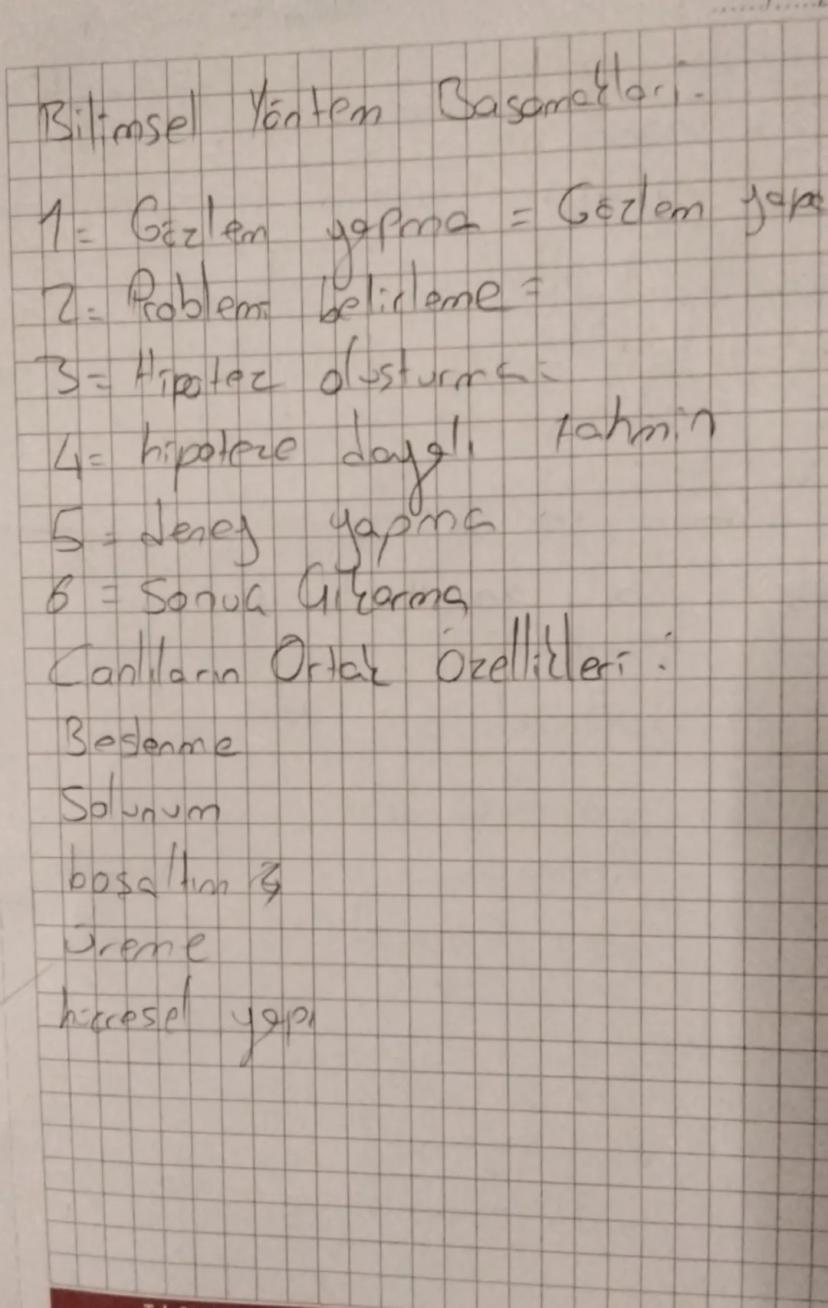 Bilimsel Yöntem Basamakları.
1= Gözlem yapma = Gözlem yap
2= Problem belirleme =
3= Hipotez oluşturma =
4= hipoteze dayalı tahmin
5= deney yapma
6= Sonuç Çıkarma
Canlıların Ortak özellikleri:
Beslenme
Solunum
boşaltım
Üreme
hücresel yapı